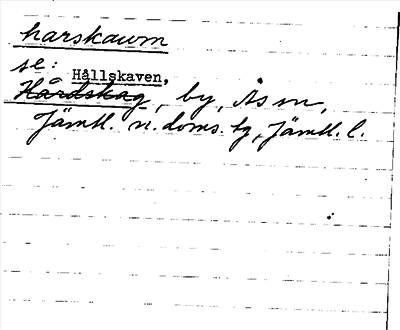 harskawm
se: Hållskaven,
Hårdskog, by, Ås sn,
Jämtl. n. doms. tg, Jämtl. l.